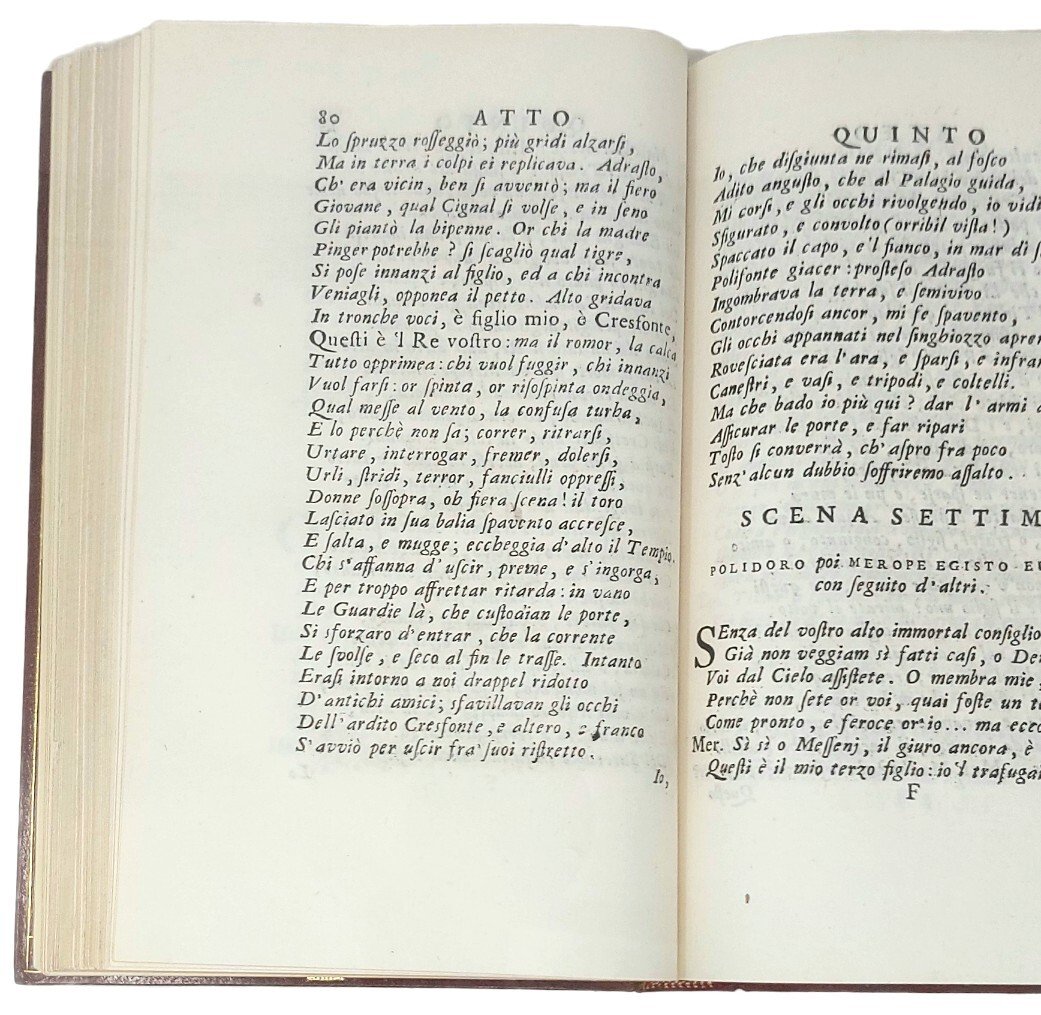 80 ATTO
Lo ſpruzzo roſſeggiò; più gridi alzarſi,
Ma in terra i colpi ei replicava. Adraſto,
Ch' era vicin, ben ſi avventò; ma il fiero
Giovane, qual Cignal ſi volſe, e in ſeno
Gli piantò la bipenne. Or chi la madre
Pinger potrebbe? ſi ſcagliò qual tigre,
Si poſe innanzi al figlio, ed a chi incontra
Veniagli, opponea il petto. Alto gridava
In tronche voci, è figlio mio, è Cresfonte,
Queſti è 'l Re voſtro: ma il romor, la calca
Tutto opprimea: chi vuol fuggir, chi innanzi
Vuol farſi: or ſpinta, or riſoſpinta ondeggia,
Qual meſſe al vento, la confuſa turba,
E lo perchè non ſa; correr, ritrarſi,
Urtare, interrogar, fremer, dolerſi,
Urli, ſtridi, terror, fanciulli oppreſſi,
Donne ſoſſopra, oh fiera ſcena! il toro
Laſciato in ſua balia ſpavento accreſce,
E ſalta, e mugge; eccheggia d'alto il Tempio.
Chi s'affanna d'uſcir, preme, e s'ingorga,
E per troppo affrettar ritarda: in vano
Le Guardie là, che cuſtodian le porte,
Si sforzaro d'entrar, che la corrente
Le ſvolſe, e ſeco al fin le traſſe. Intanto
Eraſi intorno a noi drappel ridotto
D'antichi amici; sfavillavan gli occhi
Dell'ardito Cresfonte, e altero, e franco
S'avviò per uſcir fra' ſuoi riſtretto.
Io,
QUINTO
Io, che diſgiunta ne rimaſi, al foſco
Adito anguſto, che al Palagio guida,
Mi corſi, e gli occhi rivolgendo, io vidi
Sfigurato, e convolto (orribil viſta!)
Spaccato il capo, e'l fianco, in mar di ſ
Polifonte giacer: proſteſo Adraſto
Ingombrava la terra, e ſemivivo
Contorcendoſi ancor, mi fe ſpavento,
Gli occhi appannati nel ſinghiozzo apren
Roveſciata era l'ara, e ſparſi, e infran
Caneſtri, e vaſi, e tripodi, e coltelli.
Ma che bado io più qui? dar l' armi a
Aſſicurar le porte, e far ripari
Toſto ſi converrà, ch'aſpro fra poco
Senz'alcun dubbio ſoffriremo aſſalto.
SCENA SETTIM
POLIDORO poi MEROPE EGISTO EU
con ſeguito d'altri.
SEnza del voſtro alto immortal conſiglio
Già non veggiam sì fatti caſi, o Dei
Voi dal Cielo aſſiſtete. O membra mie,
Perchè non ſete or voi, quai foſte un te
Come pronto, e feroce or'io... ma ecco
Mer. Sì sì o Meſſenj, il giuro ancora, è
Queſti è il mio terzo figlio: io 'l trafugai
F